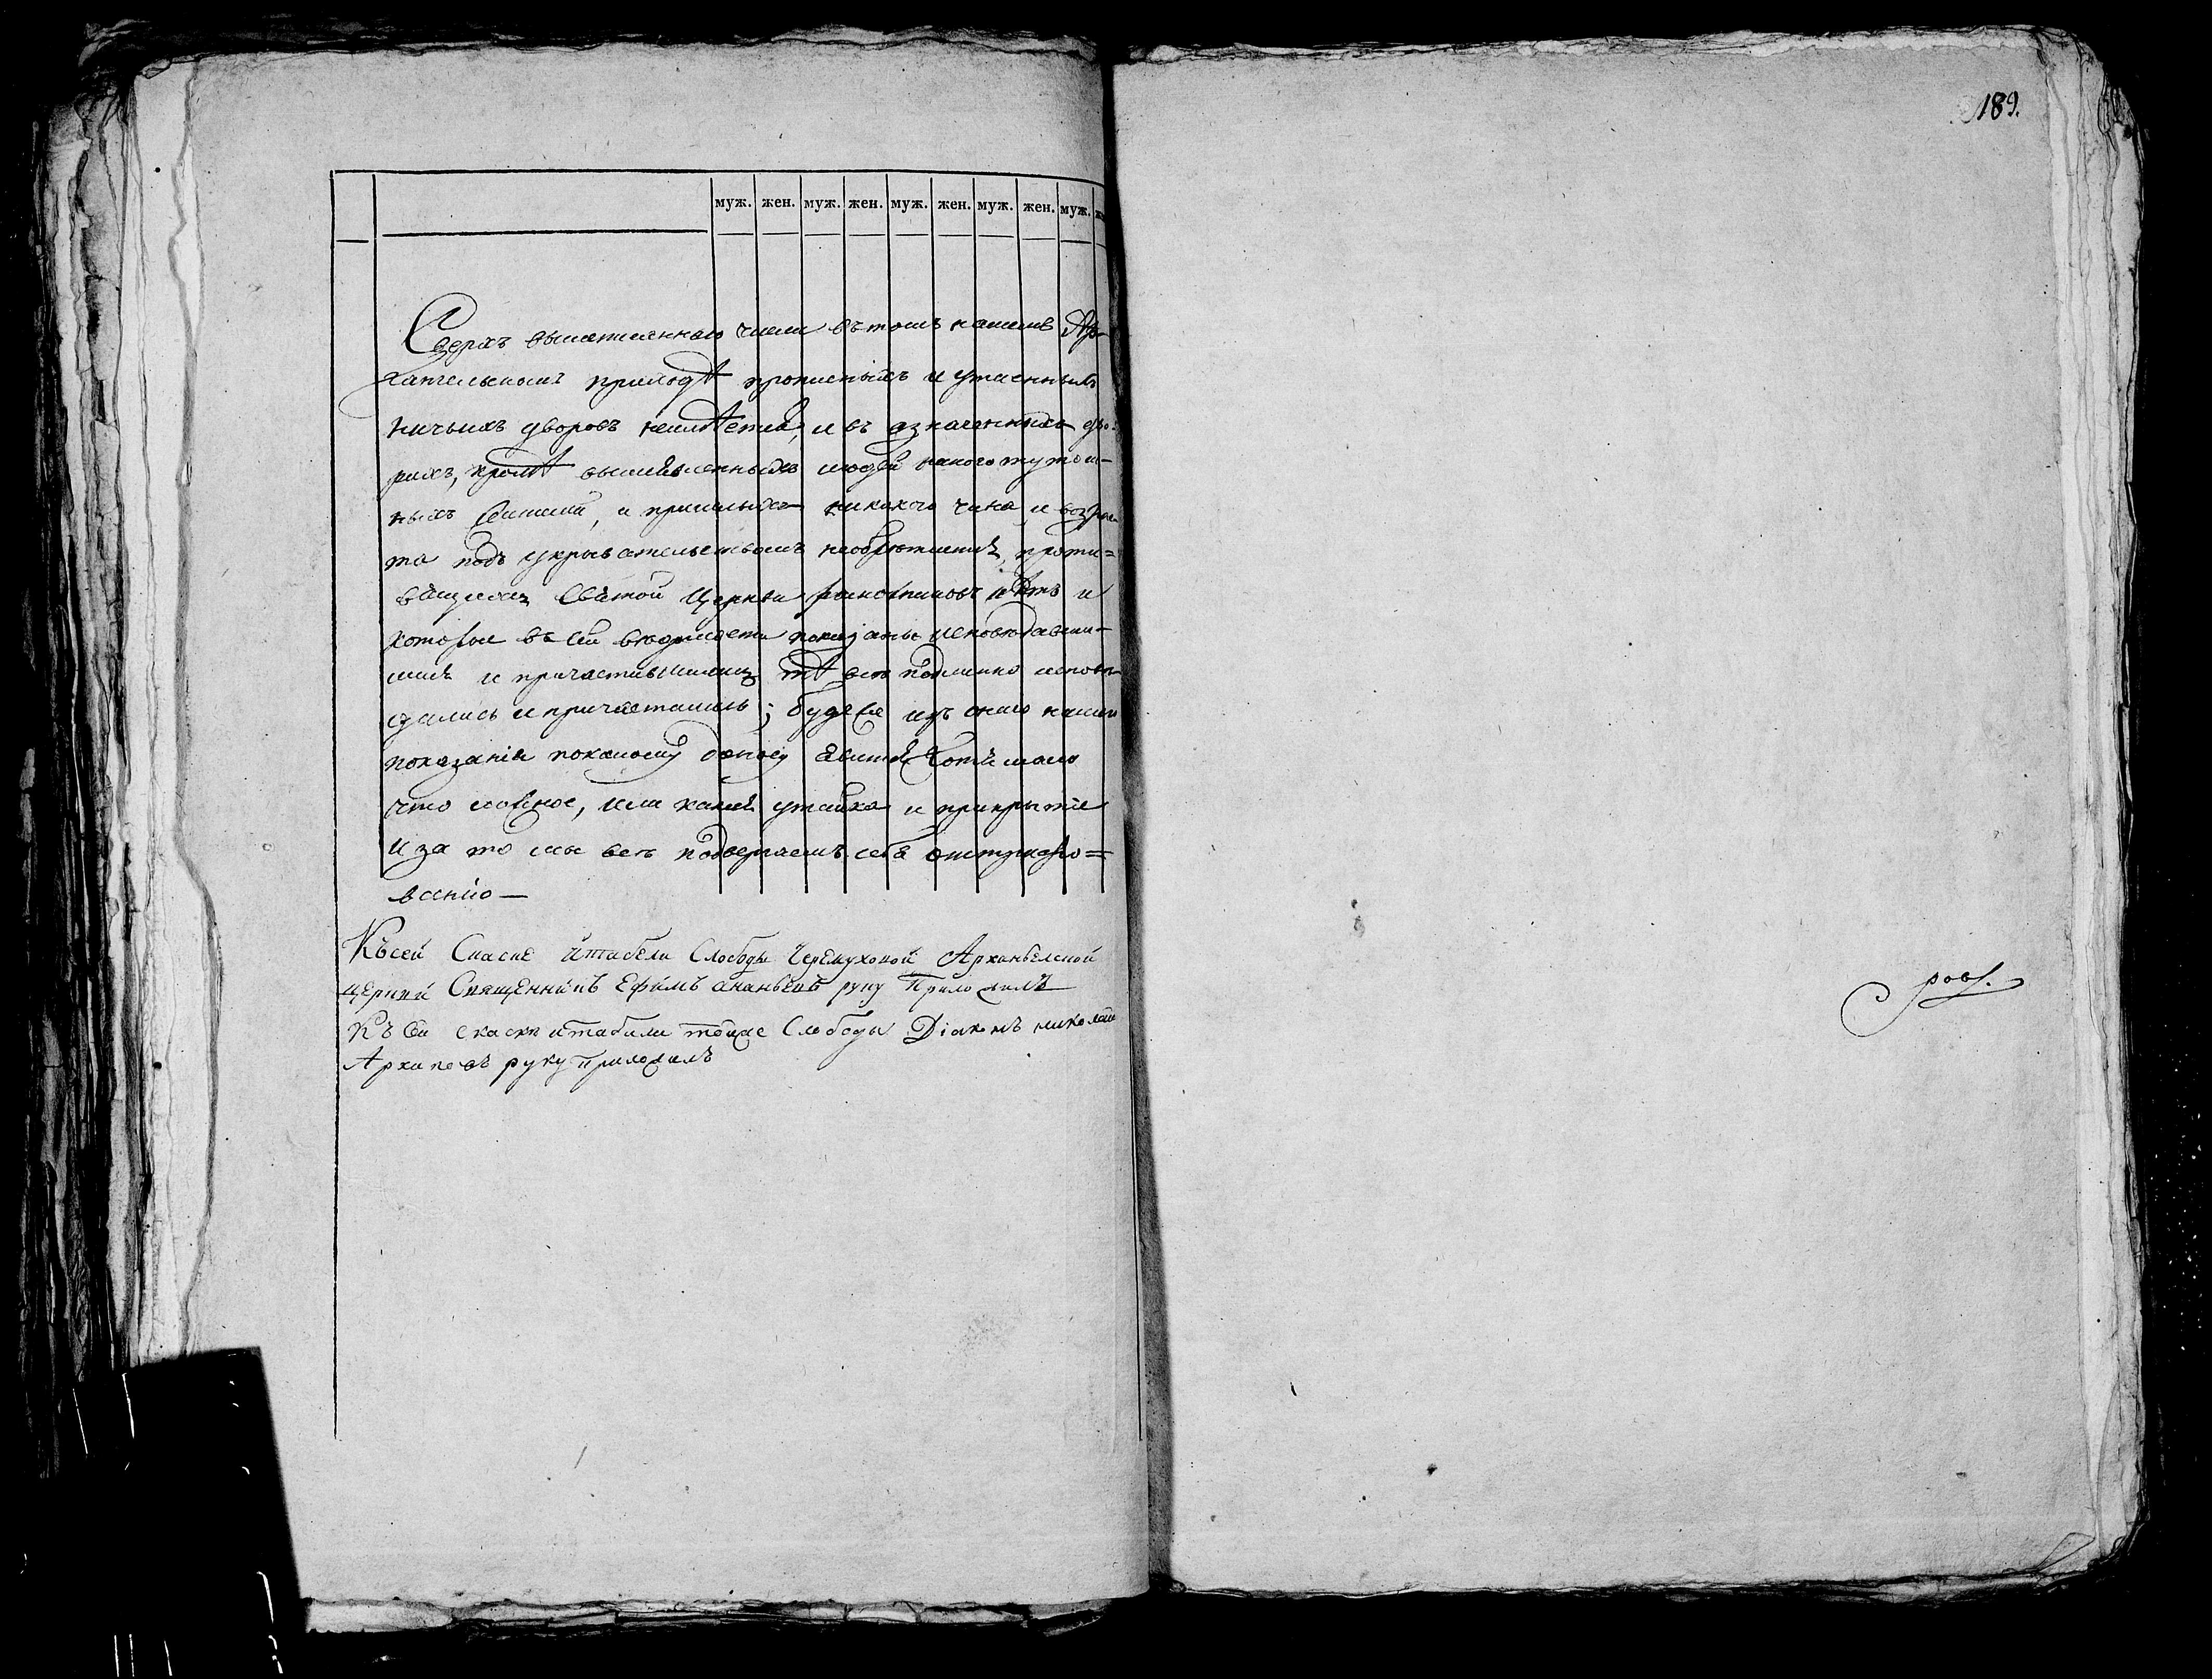 189.
муж. жен. муж. жен. муж. жен. муж. жен. муж.
Сверхъ вышеписаннаго числа въ томъ нашемъ Ар-
хангельскомъ приходѣ прописныхъ и утаенныхъ
ничьихъ дворовъ неимѣетца, и въ означенныхъ дво-
рахъ, кромѣ вышеявленныхъ людей никого тутош-
ныхъ и пришлыхъ никакого чина и возрас-
та подъ укрывательствомъ необретаетца, проти-
вящихся Святой Церкви раскольниковъ нѣтъ и
которые въ сей ведомости показаны исповедавши-
мися и причастившимися тѣ все подлинно испове-
дались и причастились; буде же изъ сего нашего
показанія покакому доносу явитца хотя мало
что ложное, или какая утайка и прикрытие
И за то мы все подвергаемъ себя оштрафо=
ванію —
Къ сей Скаске и табели Слободы Черемуховой Арханьгелской
церкви Священникъ Ефимъ ананьевъ руку Приложилъ
Къ сей скаски и табели тойже Слободы Діаконъ николаи
Архиповъ руку приложилъ